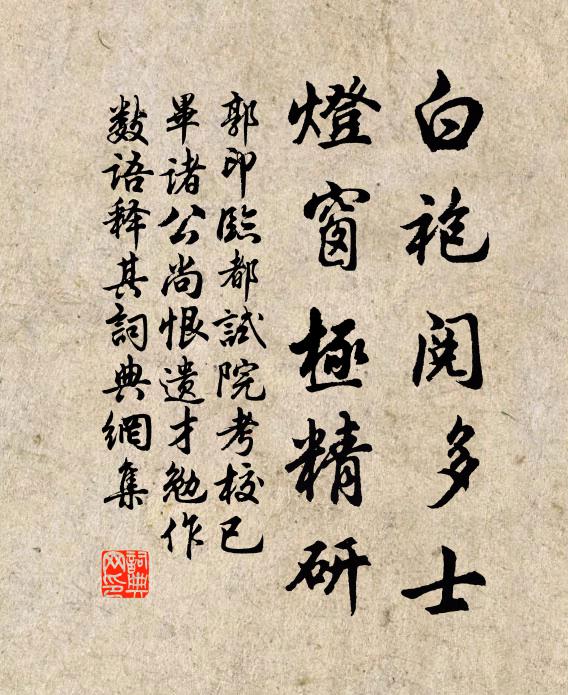 白袍閱多士
燈窗極精研
郭印臨都試院考校已
畢諸公尚恨遺才勉作
數語释其詞典網集
詞典網印